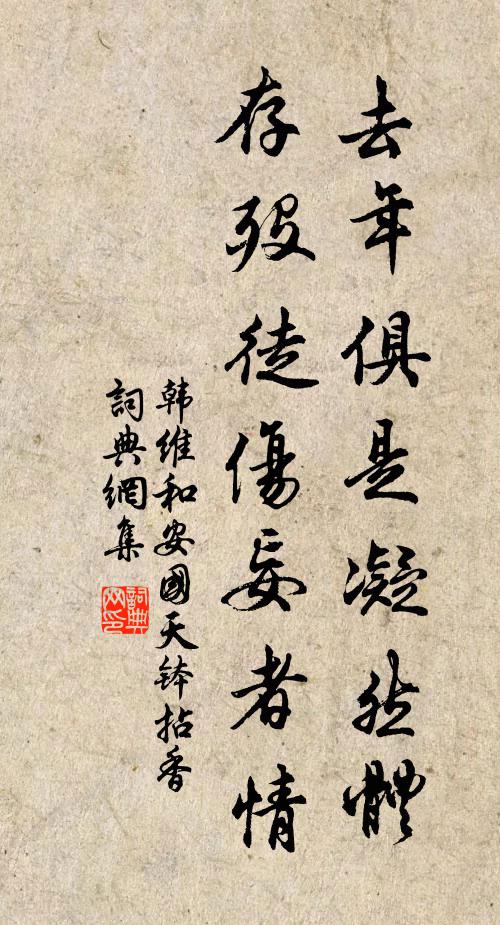 去年俱是凝然體
存歿徒傷妄者情
韩維和安國天钵拈香
詞典網集
詞典网印